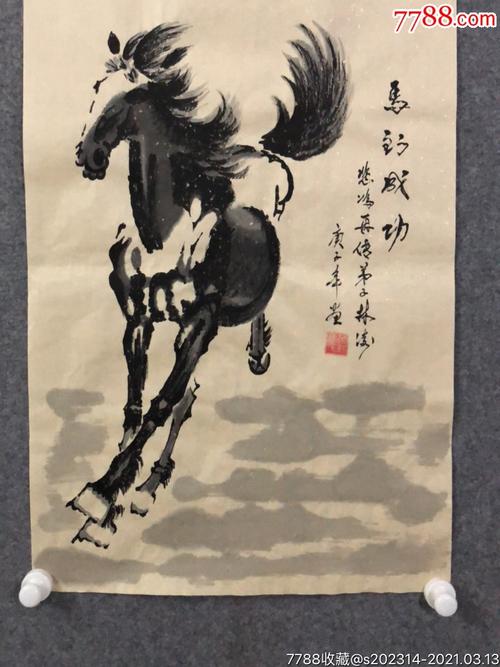 7788.com
馬到成功
悲鴻再传弟子林涛
庚子年画
7788收藏@s202314-2021.03.13